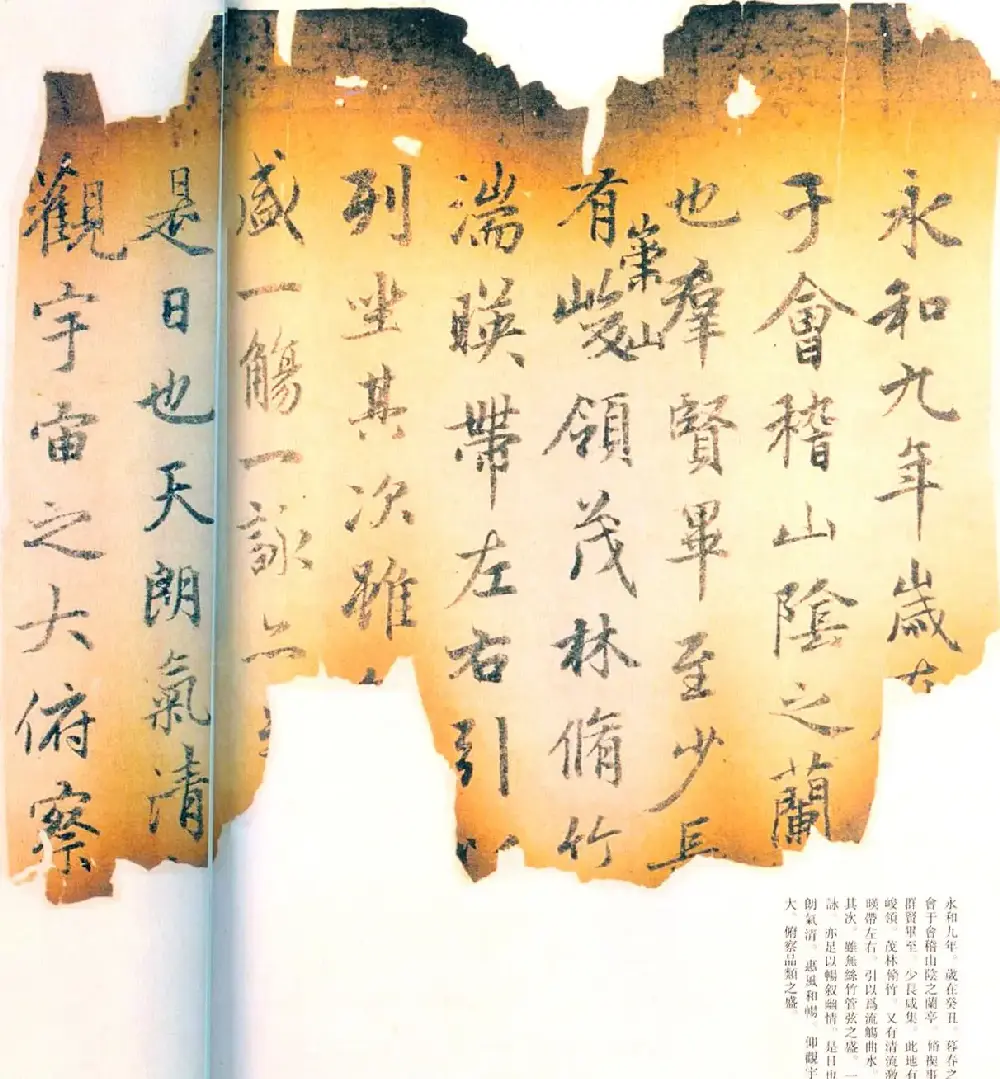 永和九年歲在
于會稽山陰之蘭
也羣賢畢至少長
有崇山峻領茂林脩竹
湍暎帶左右引
列坐其次雖
盛一觴一詠亦
是日也天朗氣清
觀宇宙之大俯察
永和九年。歲在癸丑。暮春之
會于會稽山陰之蘭亭。脩禊事
群賢畢至。少長咸集。此地有
峻領。茂林脩竹。又有清流激
暎帶左右。引以爲流觴曲水。
其次。雖無絲竹管弦之盛。一
詠。亦足以暢敘幽情。是日也
朗氣清。惠風和暢。仰觀宇
大。俯察品類之盛。